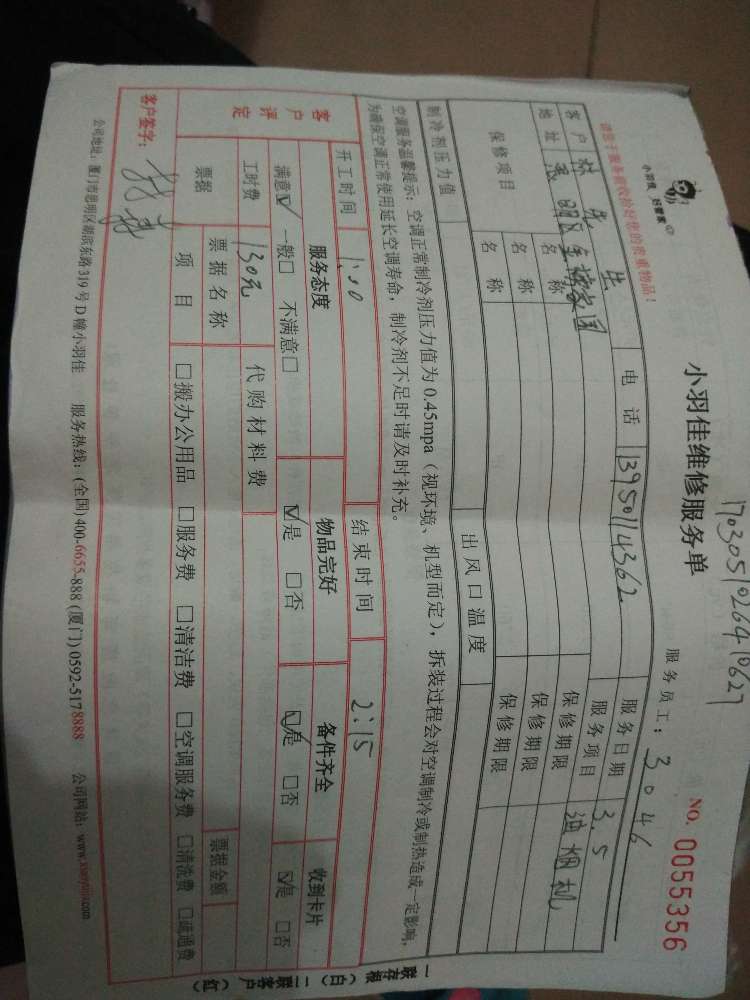 1703051026410627
小羽佳 好管家
小羽佳维修服务单
NO. 0055356
请您于服务前收拾好您的贵重物品！
服务员工：3046
客户 林先生 电话 13950114362 服务日期 3.5
地址 思明区金榜公园 服务项目 油烟机
保修项目 名称 保修期限
名称 保修期限
名称 保修期限
制冷剂压力值 出风口温度
空调服务温馨提示：空调正常制冷剂压力值为0.45mpa（视环境、机型而定），拆装过程会对空调制冷或制热造成一定影响，
为确保空调正常使用延长空调寿命，制冷剂不足时请及时补充。
开工时间 1:50 结束时间 2:15
客户评定 服务态度 物品完好 备件齐全 收到卡片
满意☑ 一般□ 不满意□ ☑是 □否 ☑是 □否 ☑是 □否
工时费 130元 代购材料费
票据 票据名称 票据金额
项目 □搬办公用品 □服务费 □清洁费 □空调服务费 □清洗费 □疏通费
客户签字：
公司地址：厦门市思明区湖滨东路319号D幢小羽佳 服务热线：(全国) 400-6655-888 (厦门) 0592-5178888 公司网站：www.xiaoyujia.com
一联存根（白） 二联客户（红）